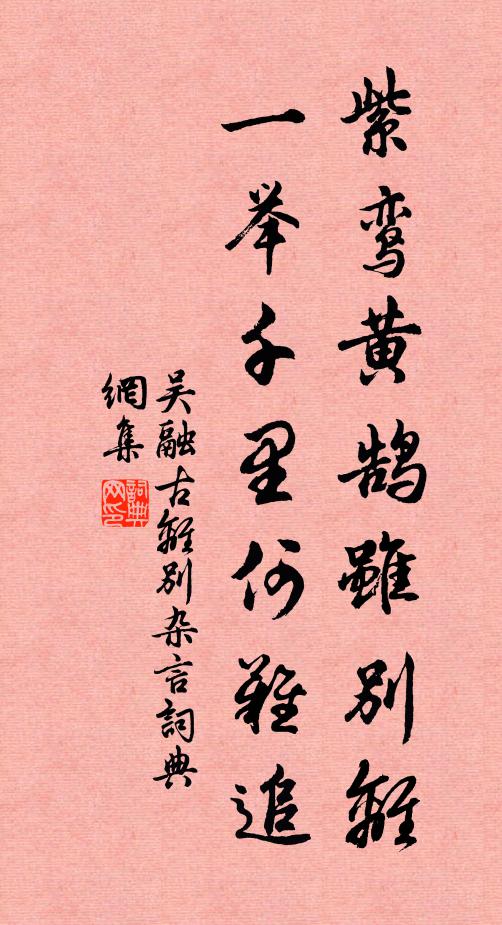 紫鸾黄鹄雖别離
一举千里何難追
吴融古離别杂言詞典
網集
詞典网印